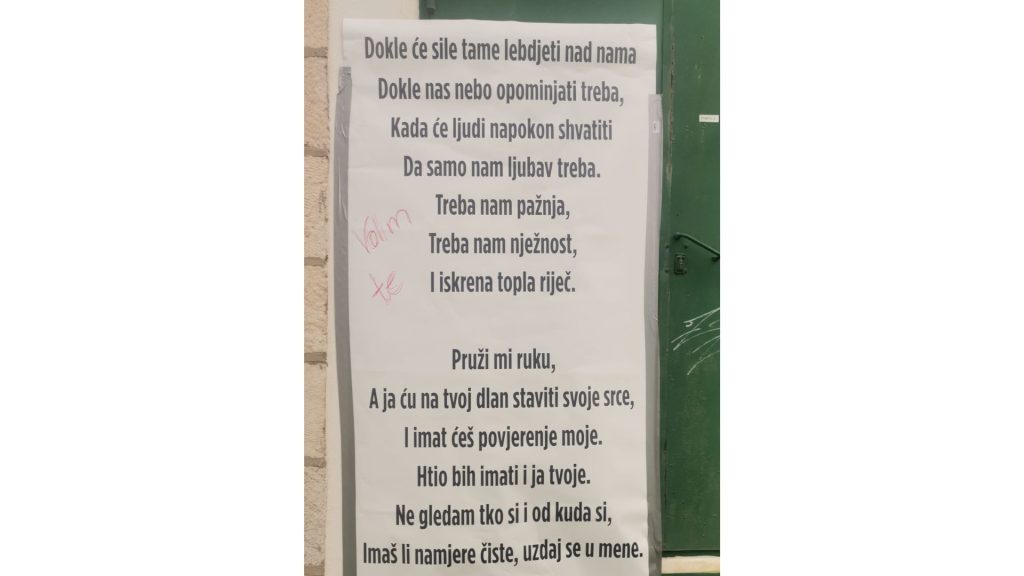 Dokle će sile tame lebdjeti nad nama
Dokle nas nebo opominjati treba,
Kada će ljudi napokon shvatiti
Da samo nam ljubav treba.
Treba nam pažnja,
Treba nam nježnost,
I iskrena topla riječ.
Volim
te
Pruži mi ruku,
A ja ću na tvoj dlan staviti svoje srce,
I imat ćeš povjerenje moje.
Htio bih imati i ja tvoje.
Ne gledam tko si i od kuda si,
Imaš li namjere čiste, uzdaj se u mene.